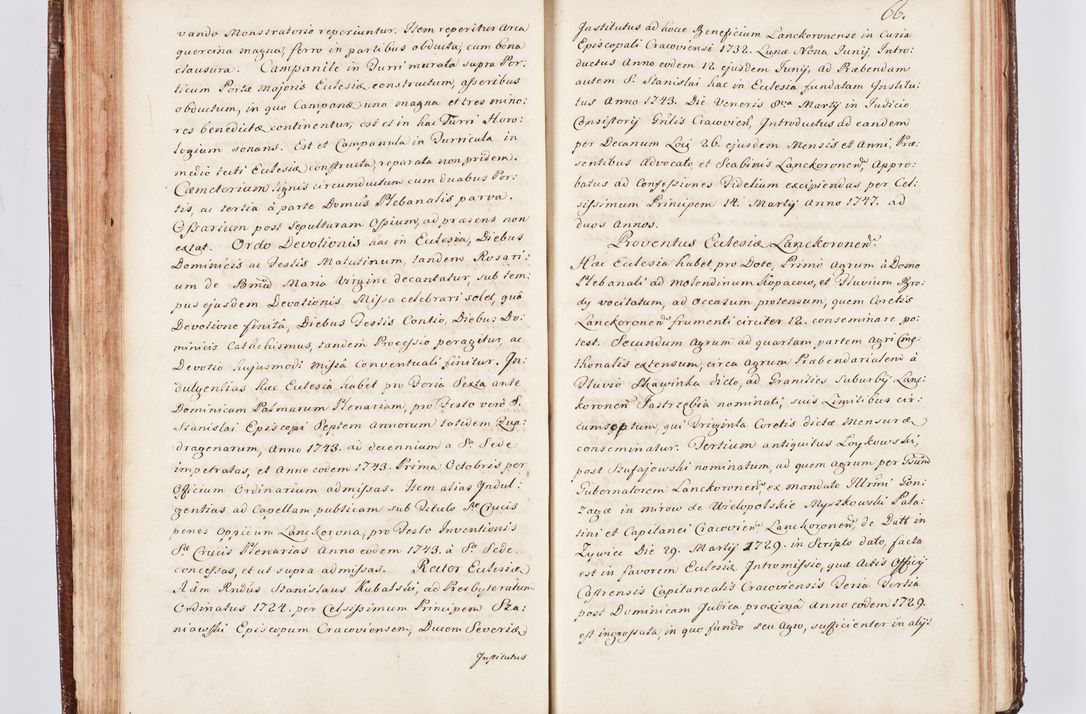 vando Monstratorio reperiuntur. Item reperitur Arca
quercina magna, ferro in partibus obducta, cum bona
clausura. Campanile in Turri murata supra Por:
ticum Portæ majoris Ecclesiæ constructum, asseribus
obductum, in quo Campanæ una magna et tres mino:
res benedictæ continentur, est et in hac Turri Horo:
logium sonans. Est et Campanula in Turricula in
medio tecti Ecclesiæ constructa, reparata non pridem.
Cæmeterium lignis circumductum cum duabus Por:
tis, ac tertia à parte Domûs Plebanalis parva.
Ossarium post sepulturam Ossium, ad præsens non
extat. Ordo Devotionis hac in Ecclesia, Diebus
Dominicis ac Festis Matutinum, tandem Rosari:
um de Bmâ Maria Virgine decantatur, sub tem:
pus ejusdem Devotionis Missa celebrari solet, quâ
Devotione finitâ, Diebus Festis Contio, Diebus Do:
minicis Cathechismus, tandem Processio peragitur, ac
Devotio hujusmodi Missâ Conventuali finitur. In:
dulgentias hæc Ecclesia habet pro Feria Sexta ante
Dominicam Palmarum Plenariam, pro Festo verò S.
Stanislai Episcopi Septem Annorum totidem Qua:
dragenarum, Anno 1743. ad decennium a Sa Sede
impetratas, et Anno eodem 1743. Prima Octobris per
Officium Ordinarium admissas. Item alias Indul:
gentias ad Capellam publicam sub Titulo Sæ Crucis
penes Oppidum Lanckorona, pro Festo Inventionis
Sæ Crucis Plenarias Anno eodem 1743. à Sa Sede
concessas, et ut supra admissas. Rector Ecclesiæ
Adm Rndus Stanislaus Kubalski, ad Presbyteratum
Ordinatus 1724. per Celsissimum Principem Sza:
niawski Episcopum Cracoviensem, Ducem Severiæ
Institutus
66.
Institutus ad hocce Beneficium Lanckoronense in Curia
Episcopali Cracoviensi 1732. Lunæ Nona Junij, Intro:
ductus Anno eodem 12 ejusdem Junij, ad Præbendam
autem S. Stanislai hac in Ecclesia fundatam Institu:
tus Anno 1743. Die Veneris 8va Martij in Judicio
Consistorij Gnlis Cracovien, Introductus ad eandem
per Decanum Loci 26. ejusdem Mensis et Anni, Præ:
sentibus Advocato, et Scabinis Lanckoronen, Appro:
batus ad Confessiones Fidelium excipiendas per Cel:
sissimum Principem 14. Martij Anno 1747. ad
duos Annos.
Proventus Ecclesiæ Lanckoronen.
Hæc Ecclesia habet pro Dote, Primò Agrum â Domo
Plebanali ad Molendinum Kopacowo, et Fluvium Bro:
dy vocitatum, ad Occasum protensum, quem Coretis
Lanckoronen frumenti circiter 12. conseminare po:
test. Secundum Agrum ad quartam partem Agri Cme:
thonalis extensum, circa Agrum Præbendarialem à
Fluvio Skawinka dicto, ad Granities Suburbij Lanc:
koronen Jastrzębia nominati, suis Limitibus cir:
cumseptum, qui Triginta Coretis dictæ Mensuræ
conseminatur. Tertium antiquitus Loykowski,
post Szufajowski nominatum, ad quem Agrum per Gsum
Gubernatorem Lanckoronen ex mandato Illrmi Gon:
zagæ in Mirow de Wielopolskie Myszkowski Pala:
tini et Capitanei Cracovien Lanckoronen, de Datt in
Zywiec Die 29. Martij 1729. in Scripto dato, facta
est in favorem Ecclesiæ Intromissio, quæ Actis Officij
Castrensis Capitanealis Cracoviensis Feria Tertia
post Dominicam Judica proximâ Anno eodem 1729.
est ingrossata, in quo fundo seu Agro, sufficienter in alij: